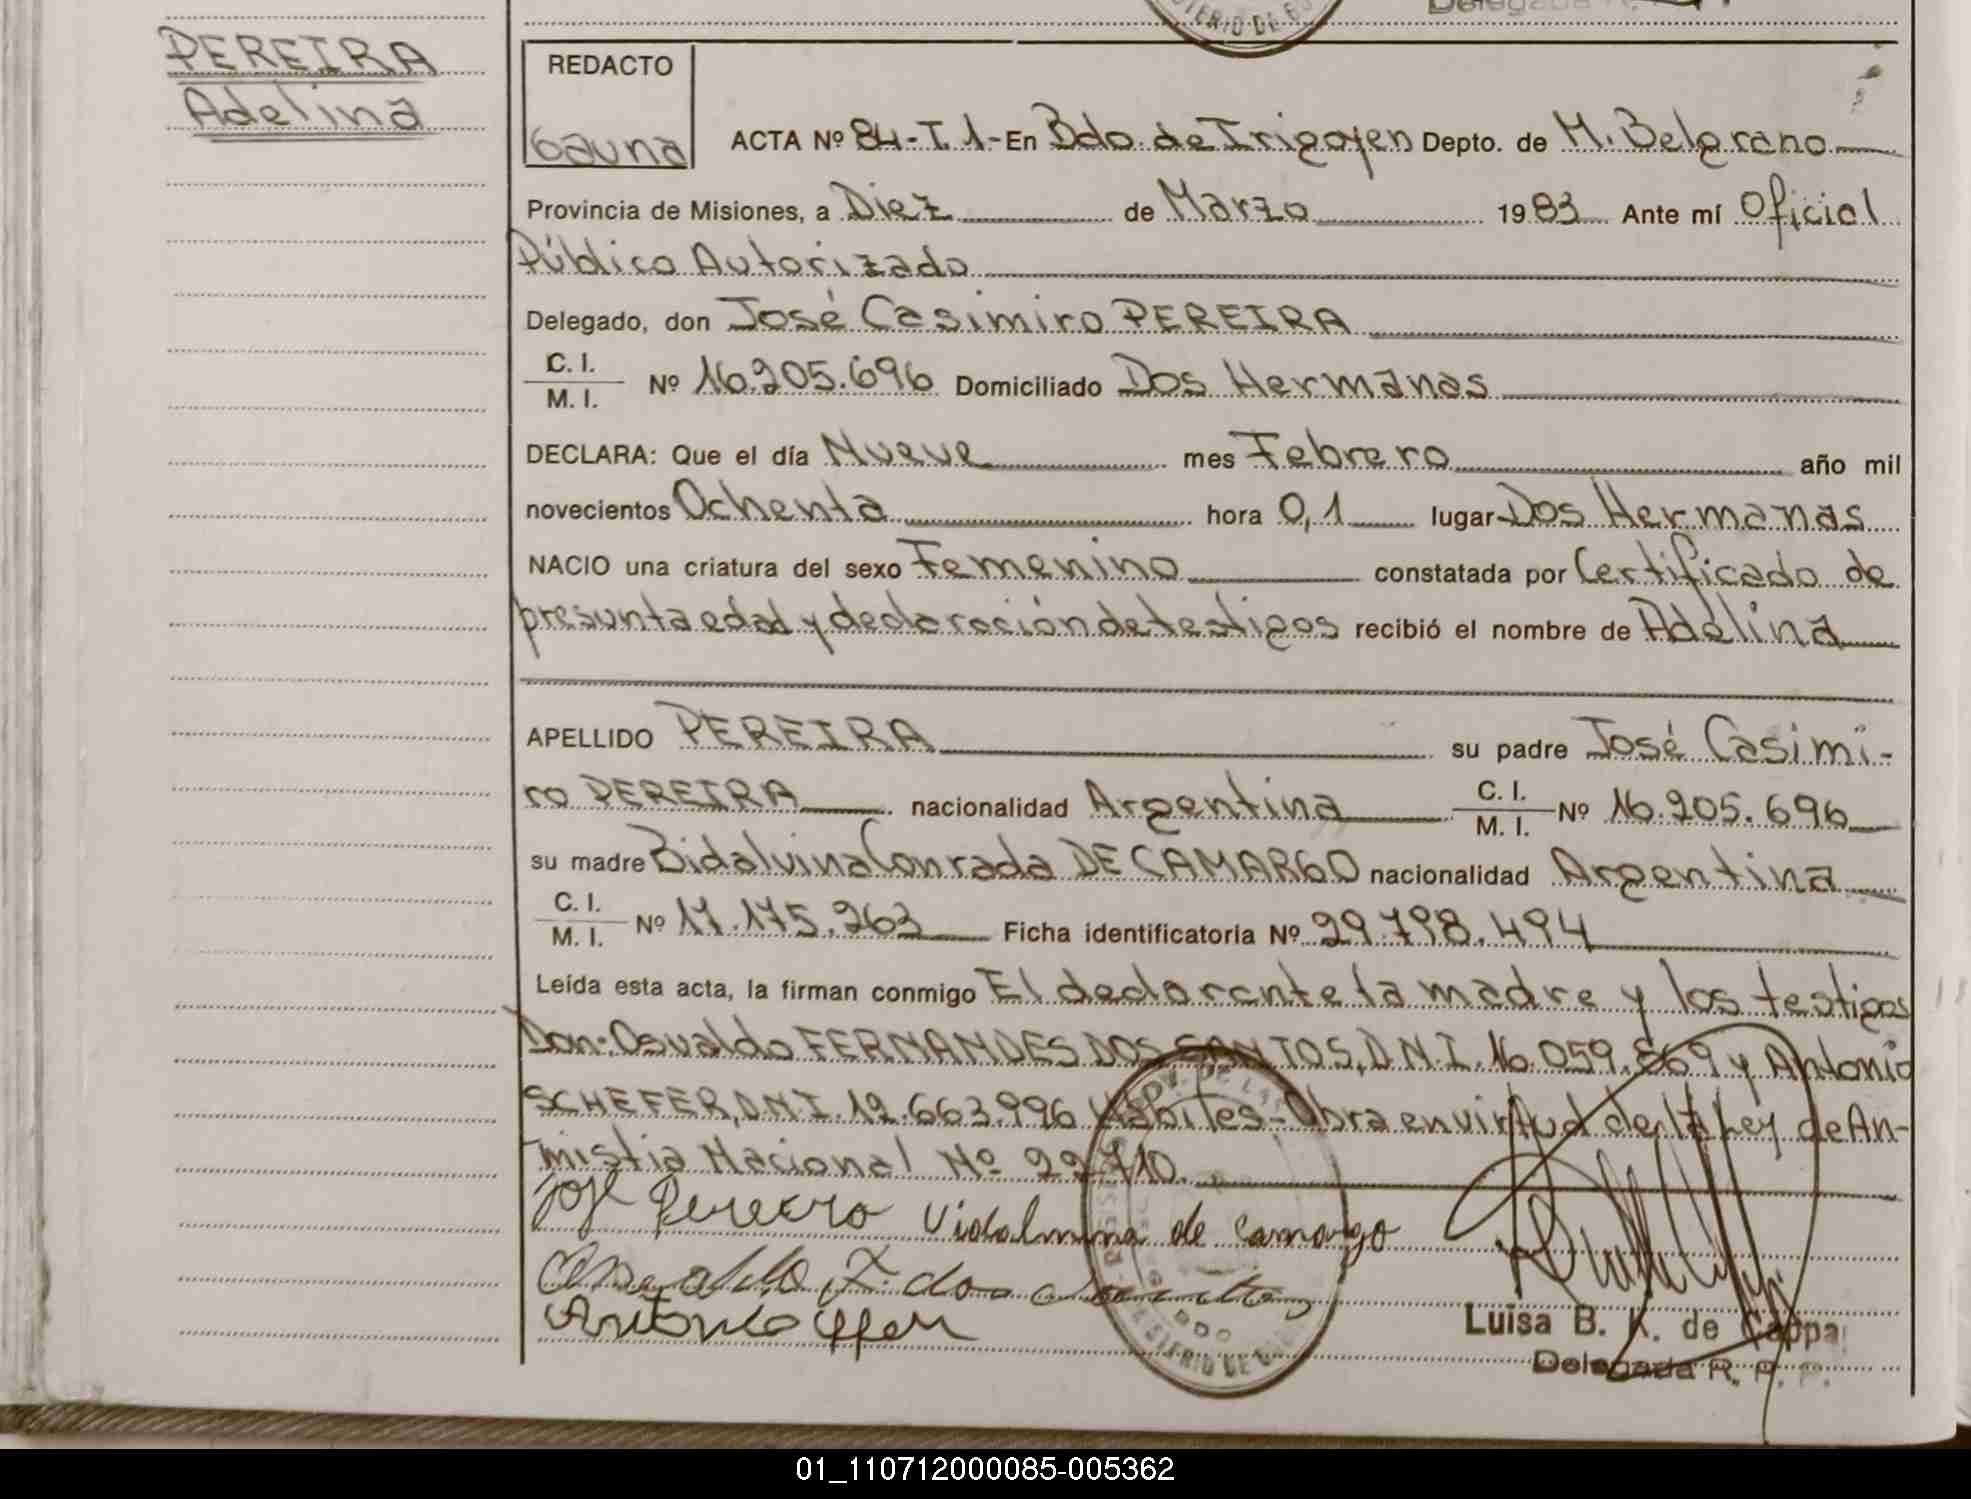 PEREIRA
Adelina
REDACTO
Gauna
ACTA Nº 84-T.1-En Bdo. de Irigoyen Depto. de M. Belgrano
Provincia de Misiones, a Diez de Marzo 1983 Ante mí Oficial
Público Autorizado
Delegado, don José Casimiro PEREIRA
C. I.
M. I. Nº 16.205.696 Domiciliado Dos Hermanas
DECLARA: Que el día Nueve mes Febrero año mil
novecientos Ochenta hora 0,1 lugar Dos Hermanas
NACIO una criatura del sexo Femenino constatada por Certificado de
presunta edad y declaración de testigos recibió el nombre de Adelina
APELLIDO PEREIRA su padre José Casimi-
ro PEREIRA nacionalidad Argentina C. I. M. I. Nº 16.205.696
su madre Bidalvina Conrada DE CAMARGO nacionalidad Argentina
C. I.
M. I. Nº 17.175.263 Ficha identificatoria Nº 29.798.494
Leída esta acta, la firman conmigo El declarante la madre y los testigos
Don: Osvaldo FERNANDES DOS SANTOS, D.N.I. 16.059.869 y Antonio
SCHEFER, D.N.I. 12.663.996 Hábiles-Obra en virtud de la Ley de An-
mistia Nacional Nº 22.710.
José Pereira Vidalmina de Camargo
Osvaldo F. dos Santos
Antonio
Luisa B. K. de Cappa
Delegada R. P.
01_110712000085-005362